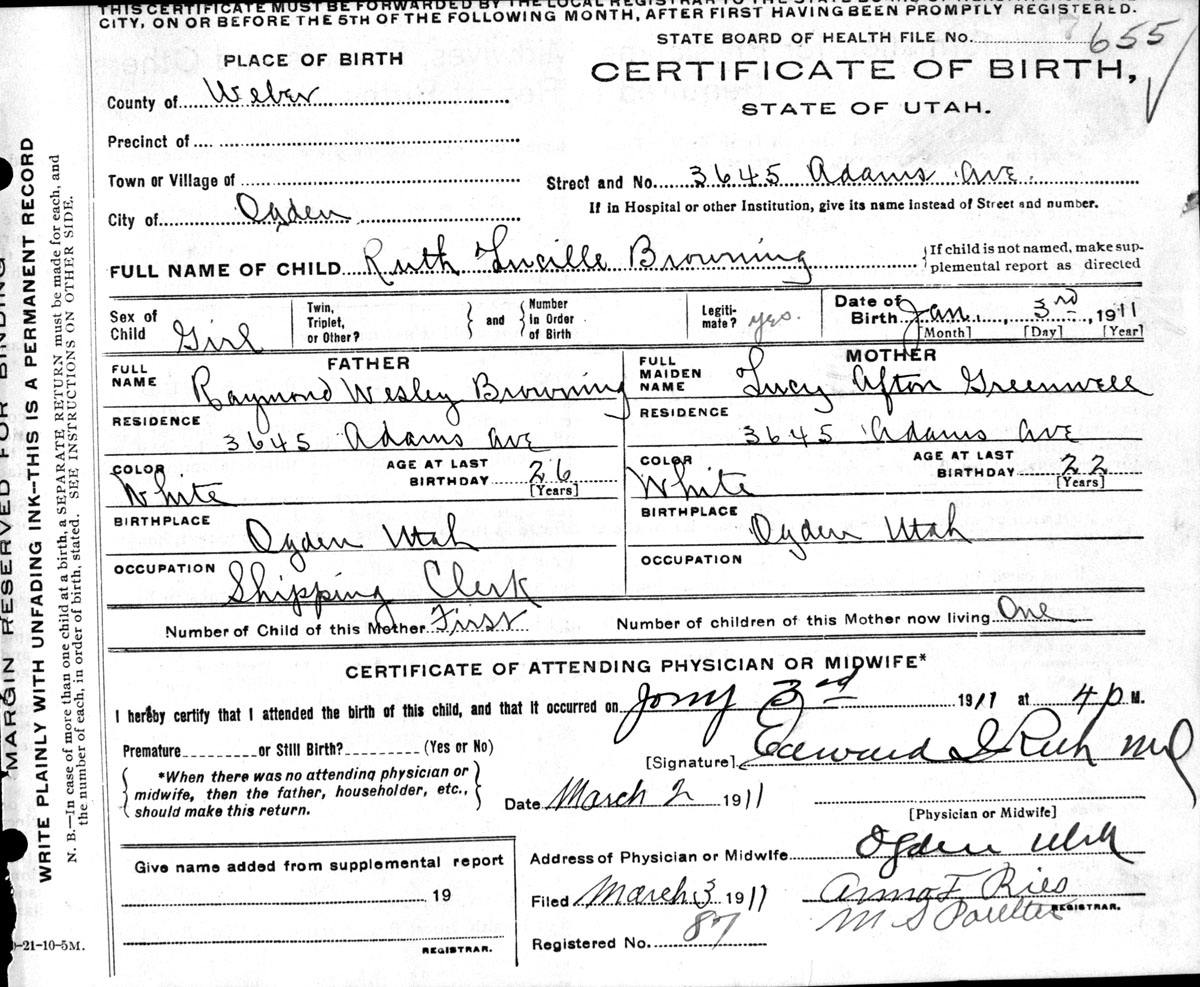 THIS CERTIFICATE MUST BE FORWARDED BY THE LOCAL REGISTRAR TO THE STATE BOARD OF HEALTH
CITY, ON OR BEFORE THE 5TH OF THE FOLLOWING MONTH, AFTER FIRST HAVING BEEN PROMPTLY REGISTERED.
STATE BOARD OF HEALTH FILE No. 655
PLACE OF BIRTH
CERTIFICATE OF BIRTH,
STATE OF UTAH.
County of Weber
Precinct of
Town or Village of
Street and No. 3645 Adams Ave.
City of Ogden
If in Hospital or other Institution, give its name instead of Street and number.
FULL NAME OF CHILD Ruth Lucille Browning
If child is not named, make sup-
plemental report as directed
Sex of Child Girl
Twin, Triplet, or Other?
and
Number In Order of Birth
Legiti-mate? yes.
Date of Birth Jan. 3rd, 1911
[Month] [Day] [Year]
FATHER
FULL NAME Raymond Wesley Browning
RESIDENCE
3645 Adams Ave
COLOR White
AGE AT LAST BIRTHDAY 26
[Years]
BIRTHPLACE
Ogden Utah
OCCUPATION
Shipping Clerk
MOTHER
FULL MAIDEN NAME Lucy Afton Greenwell
RESIDENCE
3645 Adams Ave
COLOR White
AGE AT LAST BIRTHDAY 22
[Years]
BIRTHPLACE
Ogden Utah
OCCUPATION
Number of Child of this Mother First
Number of children of this Mother now living One
CERTIFICATE OF ATTENDING PHYSICIAN OR MIDWIFE*
I hereby certify that I attended the birth of this child, and that it occurred on 3rd 1911 at 4 P. M.
Premature or Still Birth? (Yes or No)
[Signature] Edward I Rich MD
*When there was no attending physician or
midwife, then the father, householder, etc.,
should make this return.
Date March 2 1911
[Physician or Midwife]
Address of Physician or Midwife Ogden Utah
Give name added from supplemental report
19
REGISTRAR.
Filed March 3 1911
Anna F. Ries
M S Poulter
REGISTRAR.
Registered No. 87
-21-10-5M.
MARGIN RESERVED FOR BINDING
WRITE PLAINLY WITH UNFADING INK--THIS IS A PERMANENT RECORD
N. B.—In case of more than one child at a birth, a SEPARATE RETURN must be made for each, and
the number of each, in order of birth, stated. SEE INSTRUCTIONS ON OTHER SIDE.